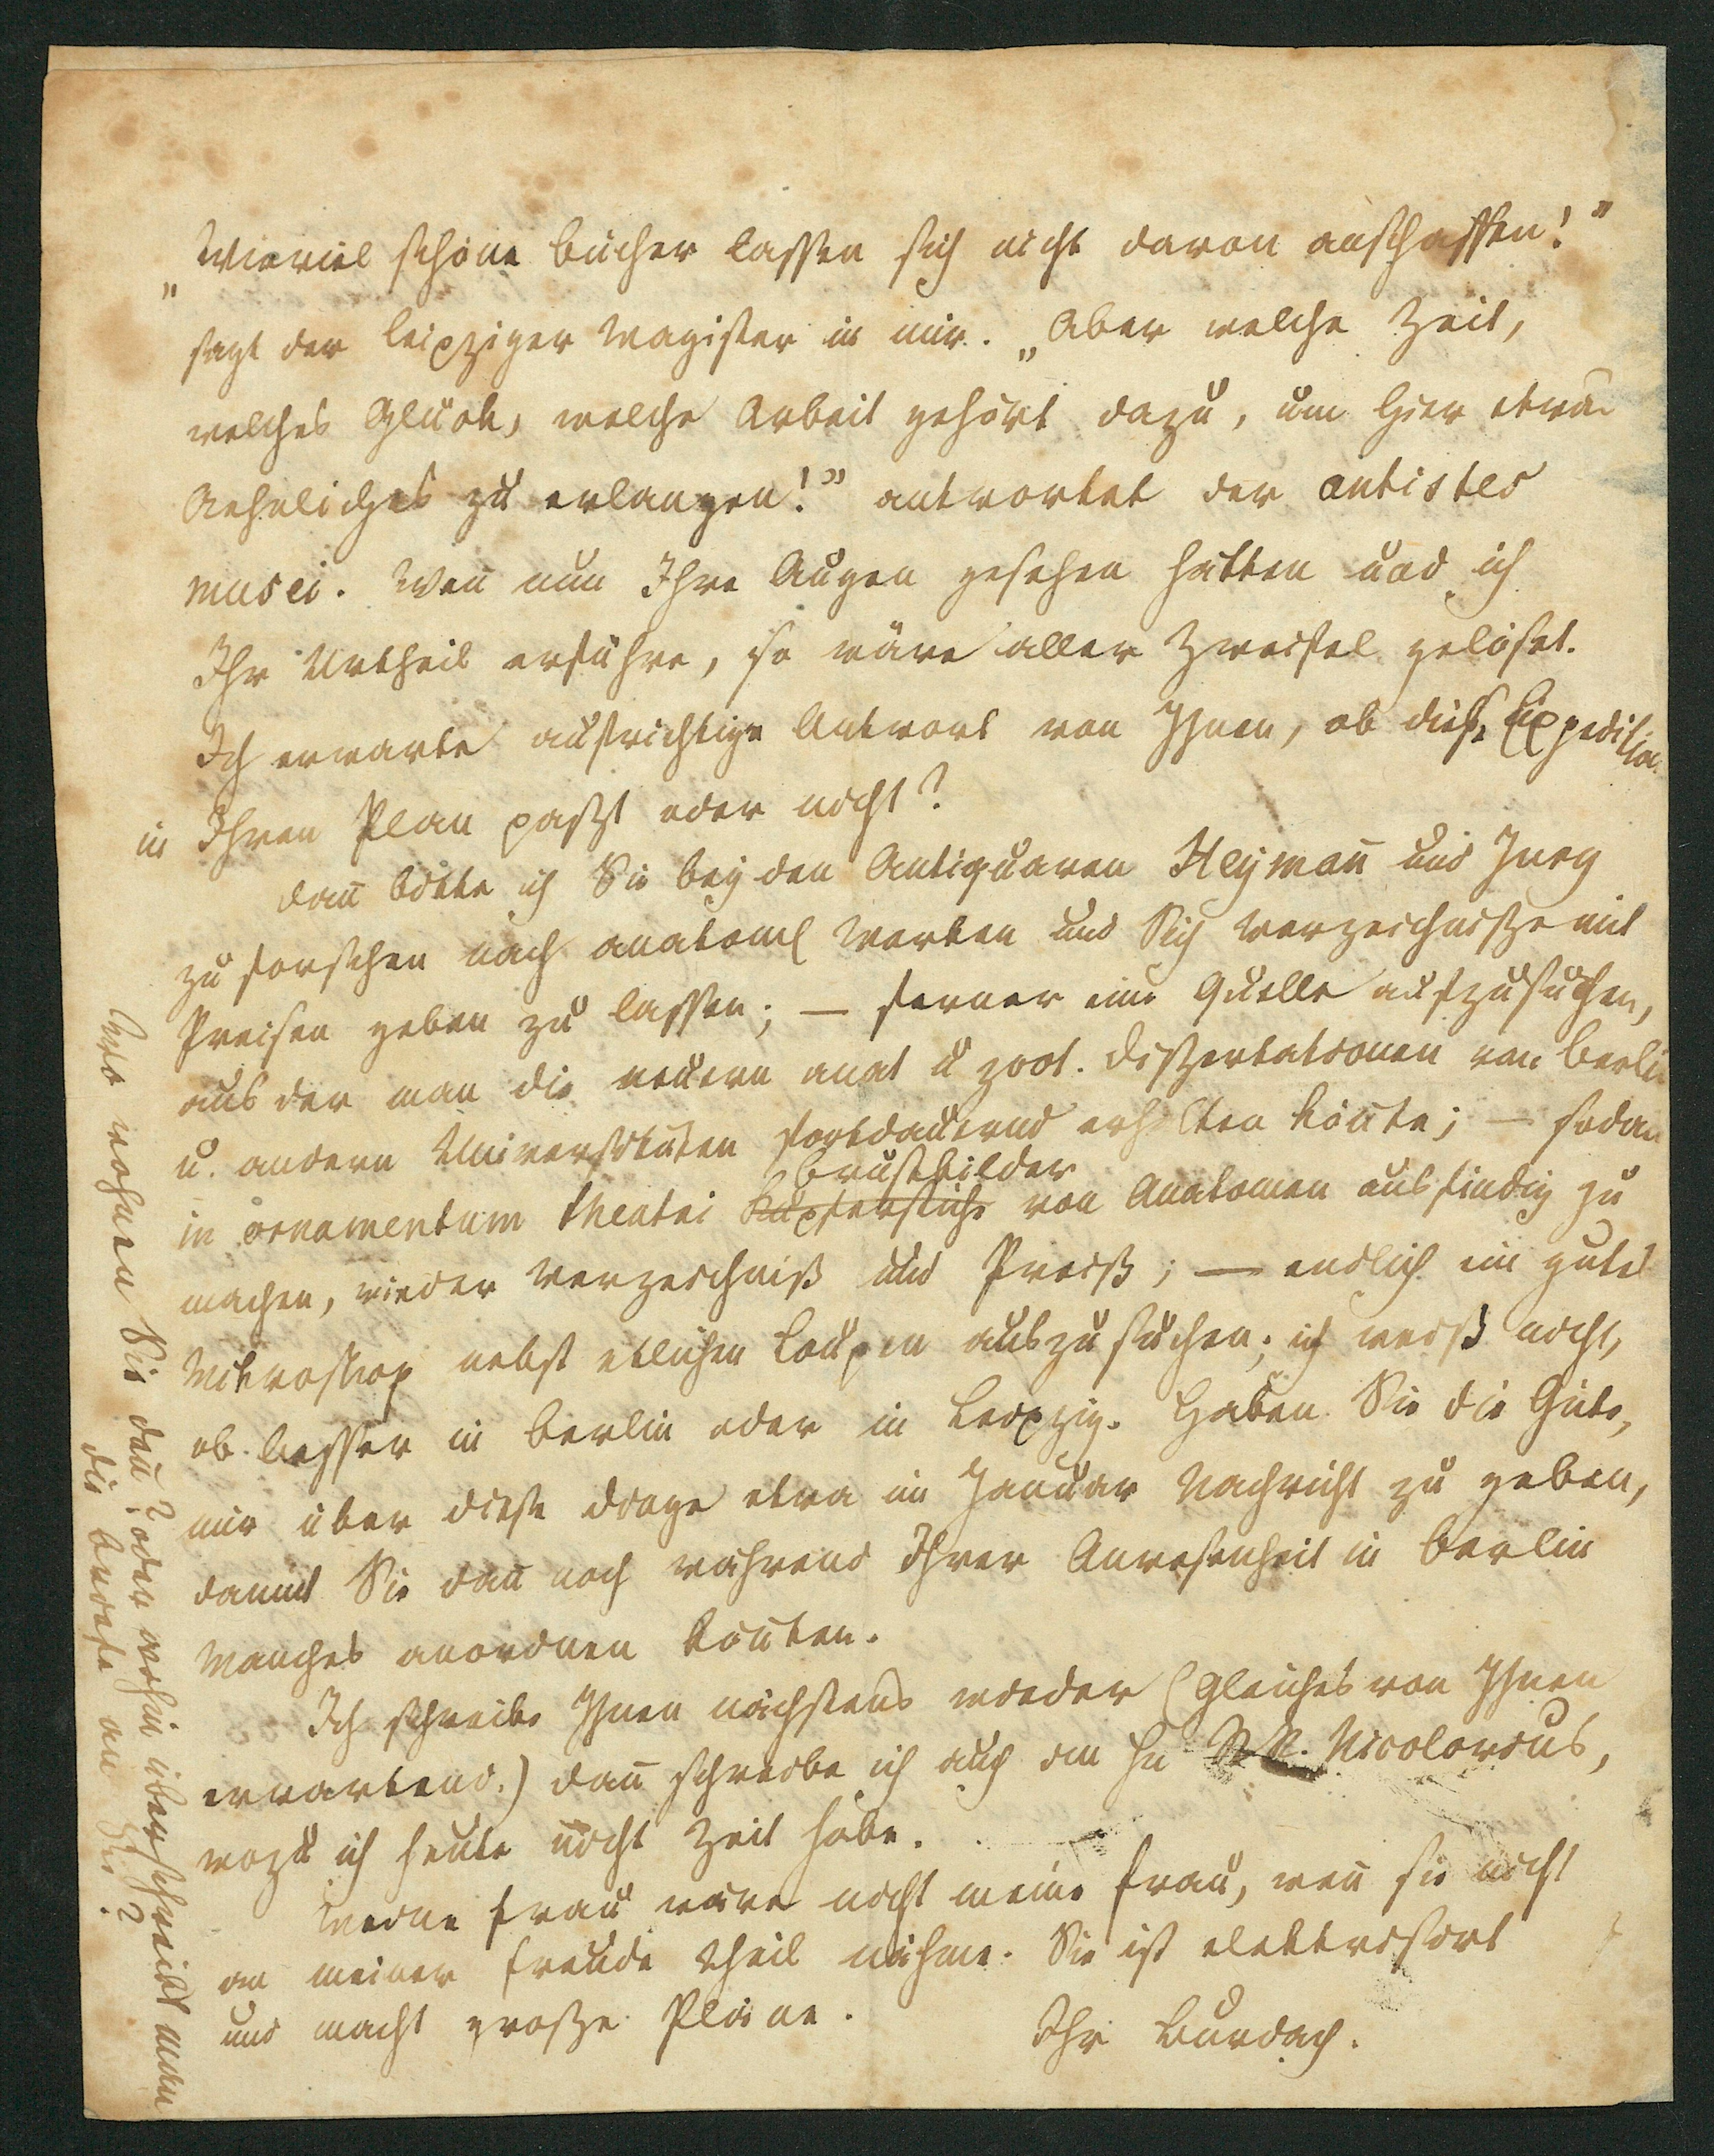 „Wieviel schöne Bücher lassen sich nicht davon anschaffen!"
sagt der Leipziger Magister in mir. „Aber welche Zeit,
welches Glück, welche Arbeit gehört dazu, um hier etwas
Aehnliches zu erlangen!" antwortet der antistes
musei. Wen̄ nun Ihre Augen gesehen hätten und ich
Ihr Urtheil erführe, so wäre aller Zweifel gelöset.
Ich erwarte aufrichtige Antwort von Ihnen, ob diese Expedition
in Ihren Plan paßt oder nicht?
Dan̄ bitte ich Sie bey den Antiquaren Heyman̄ und Jury
zu forschen nach anatom. Werken und Sich Verzeichniße mit
Preisen geben zu lassen; — ferner eine Quelle aufzusuchen,
aus der man die neuern anat u zool. Dißertationen von Berlin
u. andern Universitäten fortdauernd erhalten kön̄te; — sodan̄
in ornamentum theatri Kupferstiche Brustbilder von Anatomen ausfindig zu
machen, wieder Verzeichniß und Preiß; — endlich ein gutes
Mikroskop nebst etlichen Loupen auszusuchen; ich weiß nicht,
ob besser in Berlin oder in Leipzig. Haben Sie die Güte,
mir über diese Dinge etwa im Januar Nachricht zu geben,
damit Sie dan̄ noch während Ihrer Anwesenheit in Berlin
Manches anordnen kön̄ten.
Ich schreibe Ihnen nächstens wieder (Gleiches von Ihnen
erwartend.) Dan̄ schreibe ich auch an Hn Nicolovius,
wozu ich heute nicht Zeit habe.
Meine Frau wäre nicht meine Frau, wen̄ sie nicht
an meiner Freude Theil nähme. Sie ist elektrisirt
und macht große Pläne.
Ihr Burdach.
Wo wohnen Sie den̄? oder wohin überschreibt man
die Briefe an Sie?